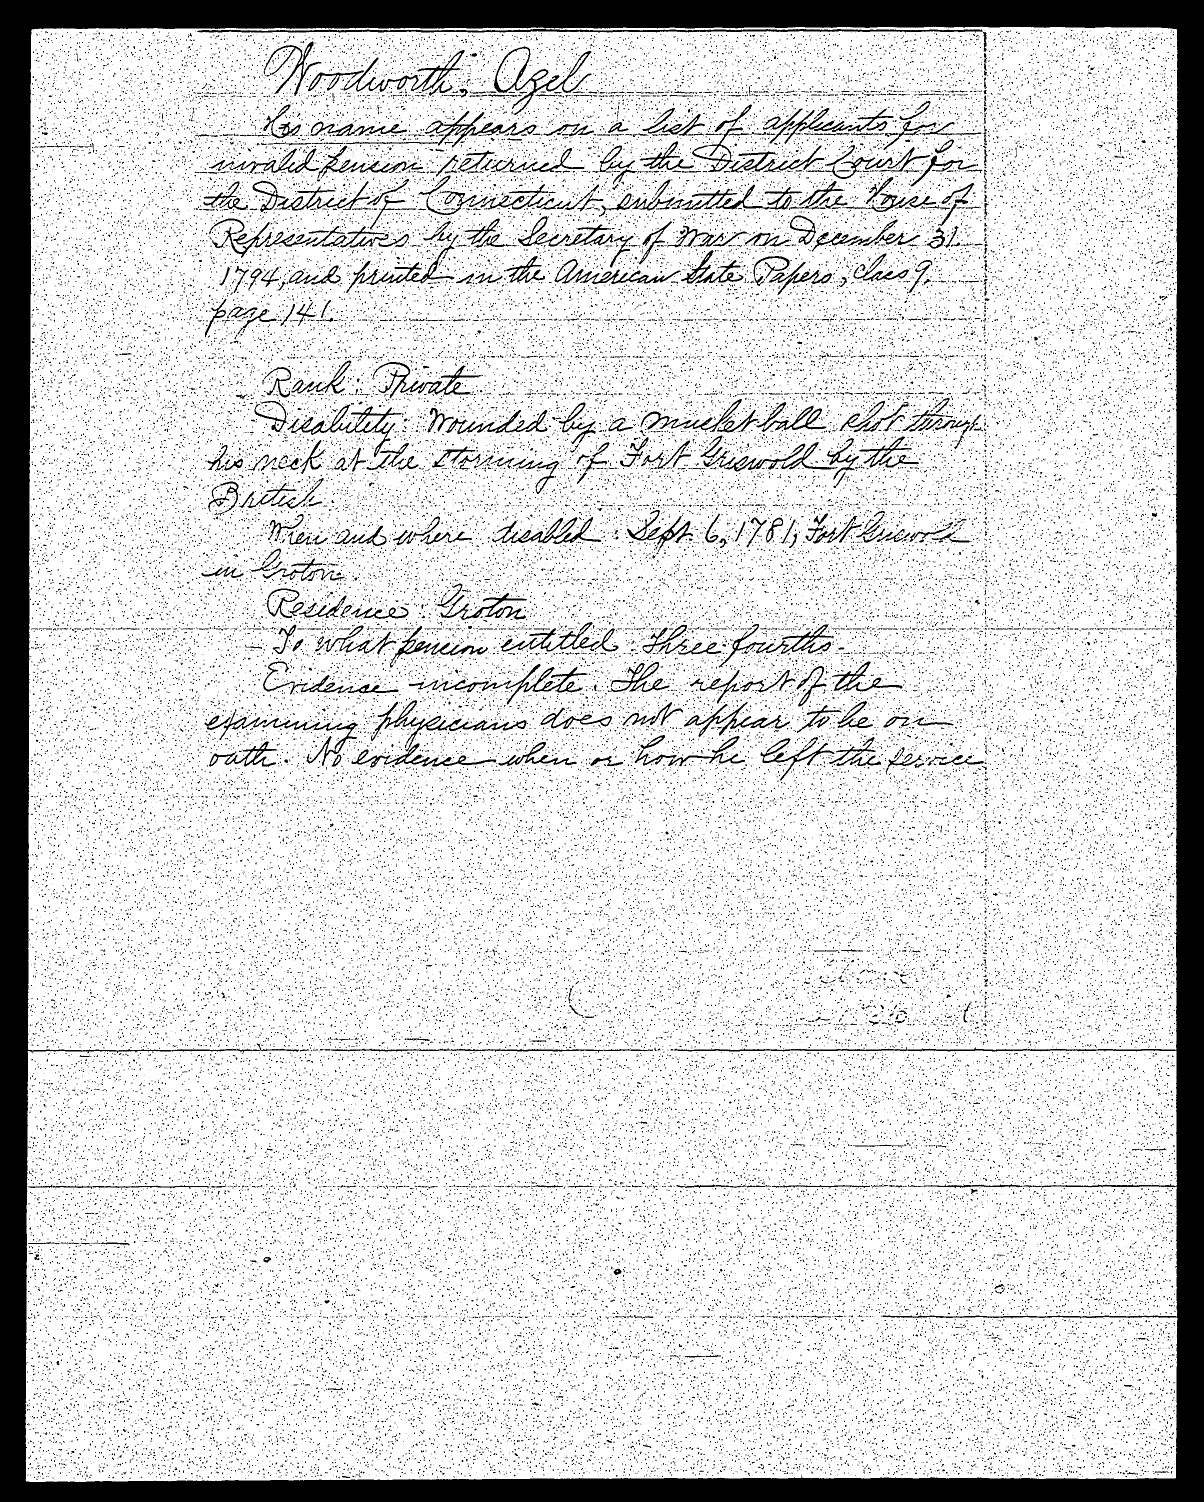 Woodworth, Azel
His name appears on a list of applicants for
invalid pension returned by the District Court for
the District of Connecticut, submitted to the House of
Representatives by the Secretary of War on December 31,
1794, and printed in the American State Papers, class 9,
page 141.
Rank: Private
Disability: Wounded by a musket ball shot through
his neck at the storming of Fort Griswold by the
British.
When and where disabled: Sept. 6, 1781, Fort Griswold
in Groton.
Residence: Groton
To what pension entitled: Three-fourths.
Evidence incomplete. The report of the
examining physicians does not appear to be on
oath. No evidence when or how he left the service